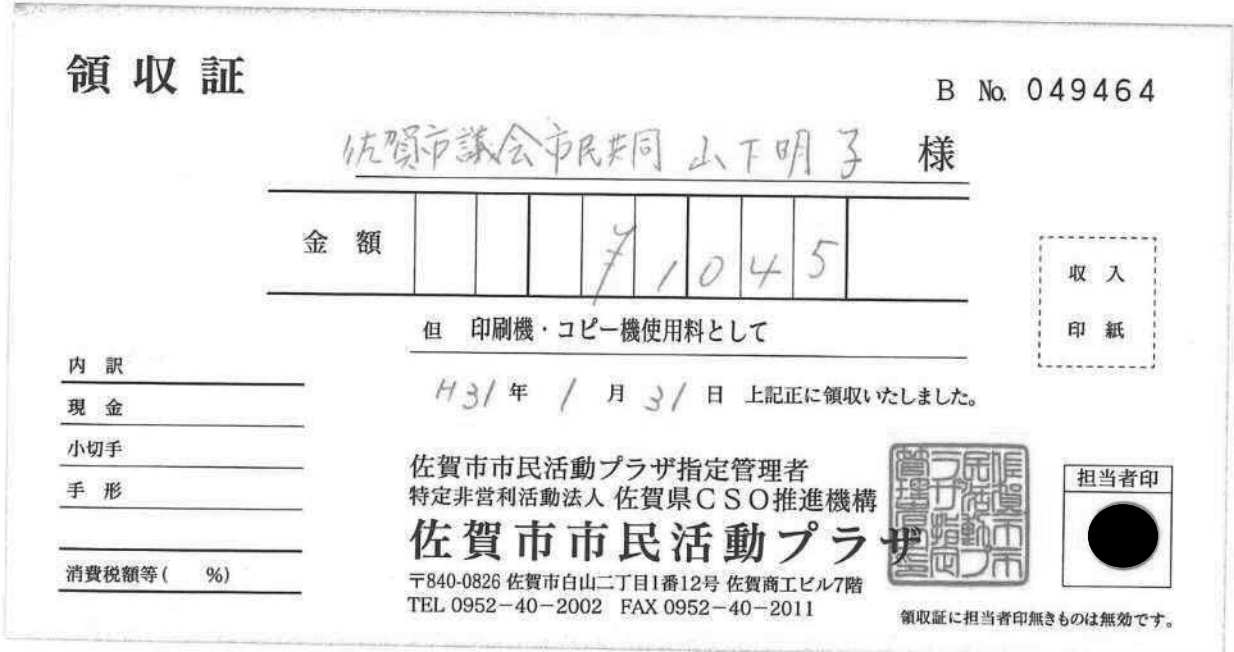 領収証
B No. 049464
佐賀市議会市民共同 山下明子 様
金額 ¥1045
収入
印紙
但 印刷機・コピー機使用料として
内訳
H31年 1月 31日 上記正に領収いたしました。
現金
小切手
手形
消費税額等( %)
佐賀市市民活動プラザ指定管理者
特定非営利活動法人 佐賀県CSO推進機構
佐賀市市民活動プラザ
〒840-0826 佐賀市白山二丁目1番12号 佐賀商工ビル7階
TEL 0952-40-2002 FAX 0952-40-2011
担当者印
領収証に担当者印無きものは無効です。